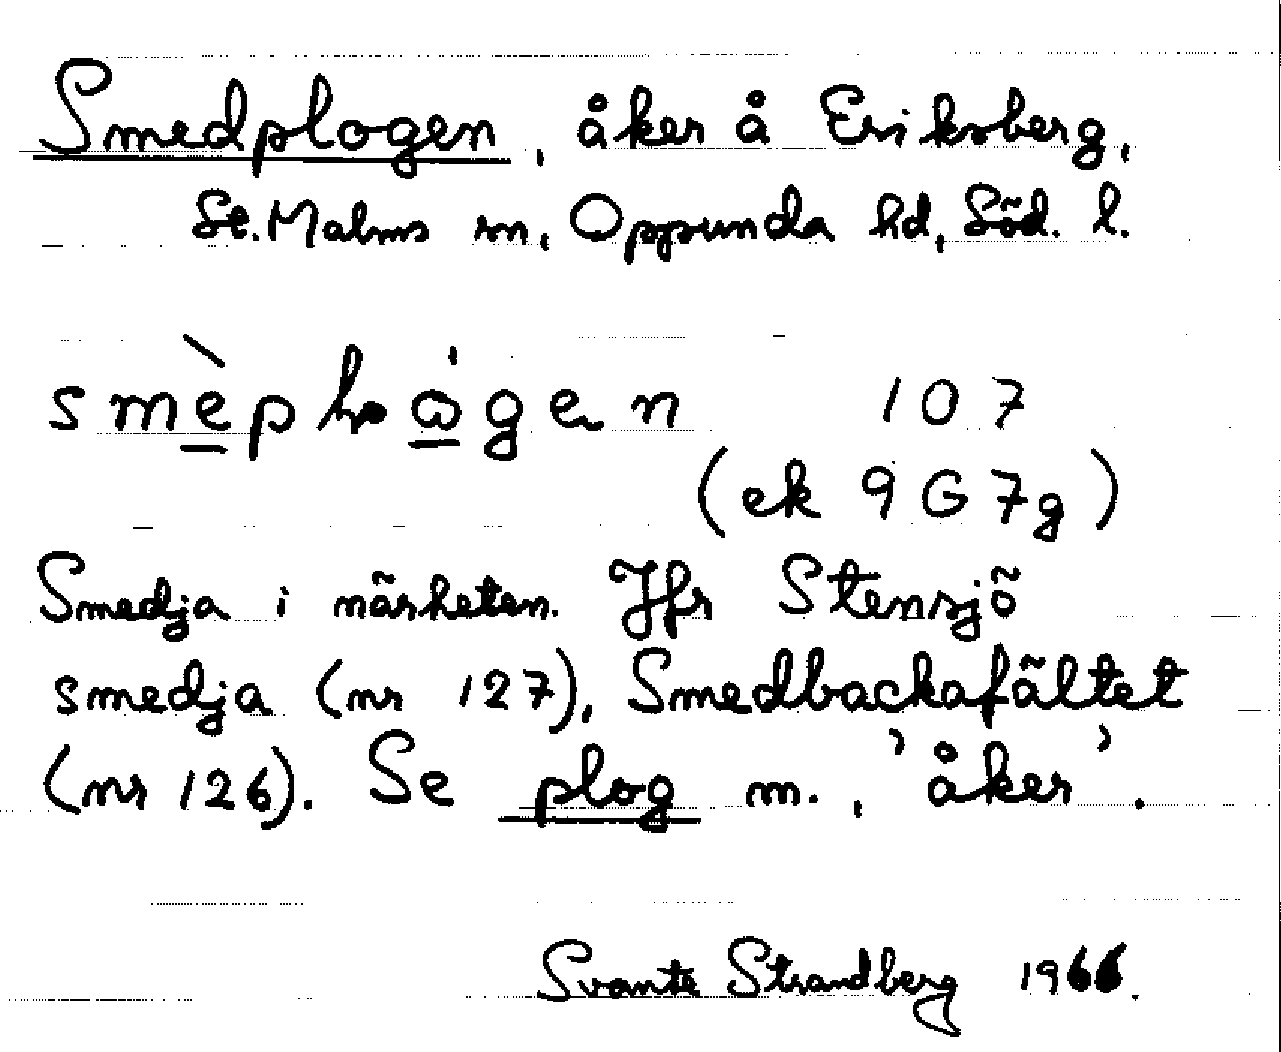 Smedplogen, åker å Eriksberg,
St. Malms sn, Oppunda hd, Söd. l.
107
(ek 9G7g)
Smedja i närheten. Jfr Stensjö
smedja (nr 127), Smedbackafältet
(nr 126). Se plog m., 'åker'.
Svante Strandberg 1966.